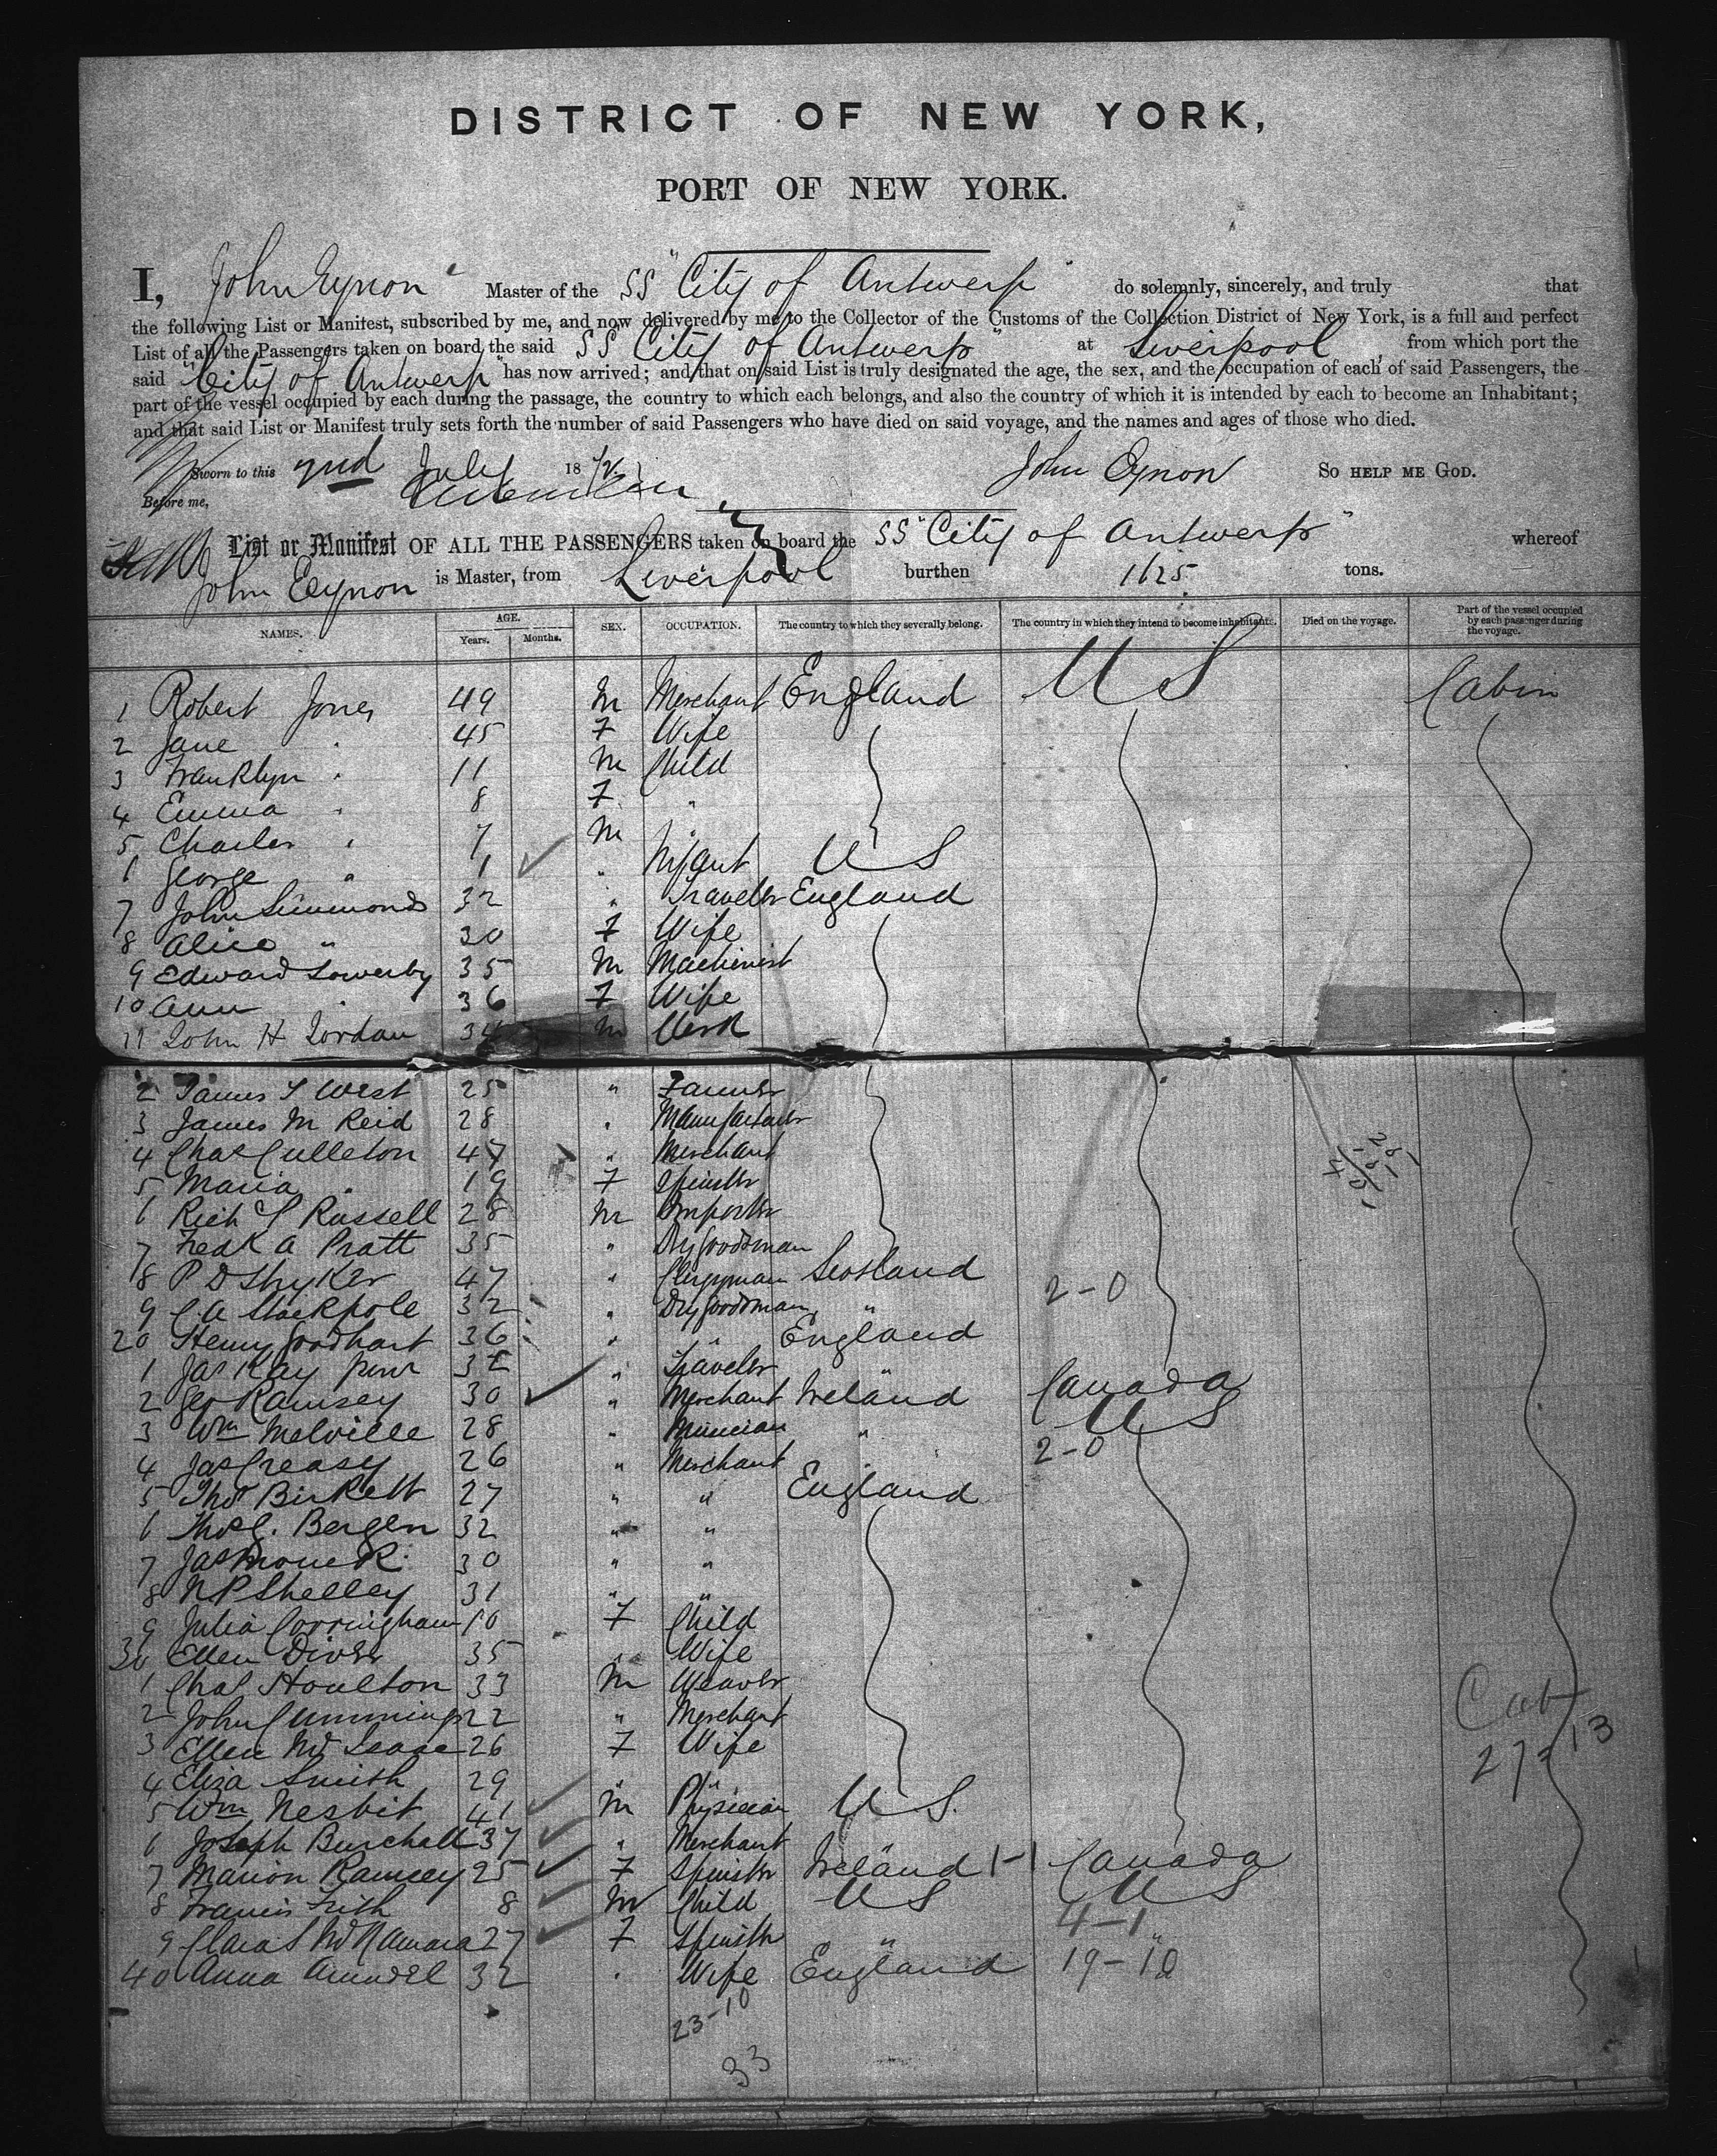 DISTRICT OF NEW YORK,
PORT OF NEW YORK.
I, John Eynon Master of the SS "City of Antwerp" do solemnly, sincerely, and truly that
the following List or Manifest, subscribed by me, and now delivered by me to the Collector of the Customs of the Collection District of New York, is a full and perfect
List of all the Passengers taken on board the said SS "City of Antwerp" at Liverpool, from which port the
said "City of Antwerp" has now arrived; and that on said List is truly designated the age, the sex, and the occupation of each of said Passengers, the
part of the vessel occupied by each during the passage, the country to which each belongs, and also the country of which it is intended by each to become an Inhabitant;
and that said List or Manifest truly sets forth the number of said Passengers who have died on said voyage, and the names and ages of those who died.
Sworn to this 2nd July 1872 John Eynon SO HELP ME GOD.
Before me,
List or Manifest OF ALL THE PASSENGERS taken on board the SS "City of Antwerp" whereof
John Eynon is Master, from Liverpool burthen 1625 tons.
NAMES. AGE. Years. Months. SEX. OCCUPATION. The country to which they severally belong. The country in which they intend to become inhabitants. Died on the voyage. Part of the vessel occupied by each passenger during the voyage.
1 Robert Jones 49 M Merchant England U S Cabin
2 Jane " 45 F Wife
3 Franklyn " 11 M Child
4 Emma " 8 F "
5 Charles " 7 M
1 George " 1 " Infant U S
7 John Simmonds 32 " Traveler England
8 Alice " 30 F Wife
9 Edward Lowerby 35 M Machinist
10 Ann " 36 F Wife
11 John H Jordan 34 M Clerk
2 James T West 25 " Farmer
3 James M Reid 28 " Manufacturer
4 Chas Culleton 47 " Merchant
5 Maria " 19 F Spinster
6 Rich S Russell 28 M Importer
7 Fredk A Pratt 35 " Dry Goodsman
8 P D Stryker 47 " Clergyman Scotland 2-0
9 C A Stackpole 32 " Dry Goodsman "
20 Henry Goodhart 36 " " England
1 Jas Kay Junr 32 " Traveler "
2 Geo Ramsey 30 " Merchant Ireland Canada
3 Wm Melville 28 " Musician " U S
4 Jas Creasy 26 " Merchant 2-0
5 Thos Birkett 27 " " England
6 Thos C. Bergen 32 " "
7 Jas Monck 30 " "
8 N P Shelley 31 " "
9 Julia Corringham 10 F Child
30 Ellen Diver 35 " Wife
1 Chas Houlton 33 M Weaver
2 John Cummings 22 " Merchant
3 Ellen McIsaac 26 F Wife
4 Eliza Smith 29 " "
5 Wm Nesbit 41 M Physician U S.
6 Joseph Burchall 37 " Merchant "
7 Marion Ramsey 25 F Spinster Ireland 1-1 Canada
8 Francis Frith 8 M Child U S U S
9 Clara S McNamara 27 F Spinster " 4-1 "
40 Anna Arundel 32 " Wife England 19-10
Cab
27=13
23-10
33